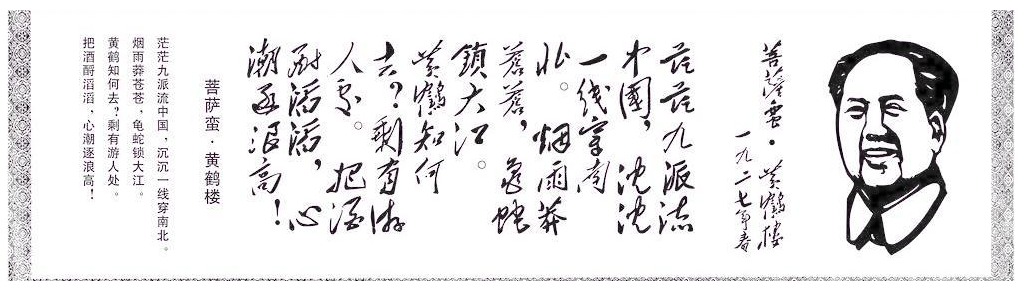 菩薩蛮·黄鶴樓
一九二七年春
茫茫九派流
中國，沈沈
一线穿南
北。烟雨莽
蒼蒼，龟蛇
鎖大江。
黄鶴知何
去？剩有游
人处。把酒
酹滔滔，心
潮逐浪高！
菩萨蛮·黄鹤楼
茫茫九派流中国，沉沉一线穿南北。
烟雨莽苍苍，龟蛇锁大江。
黄鹤知何去？剩有游人处。
把酒酹滔滔，心潮逐浪高！